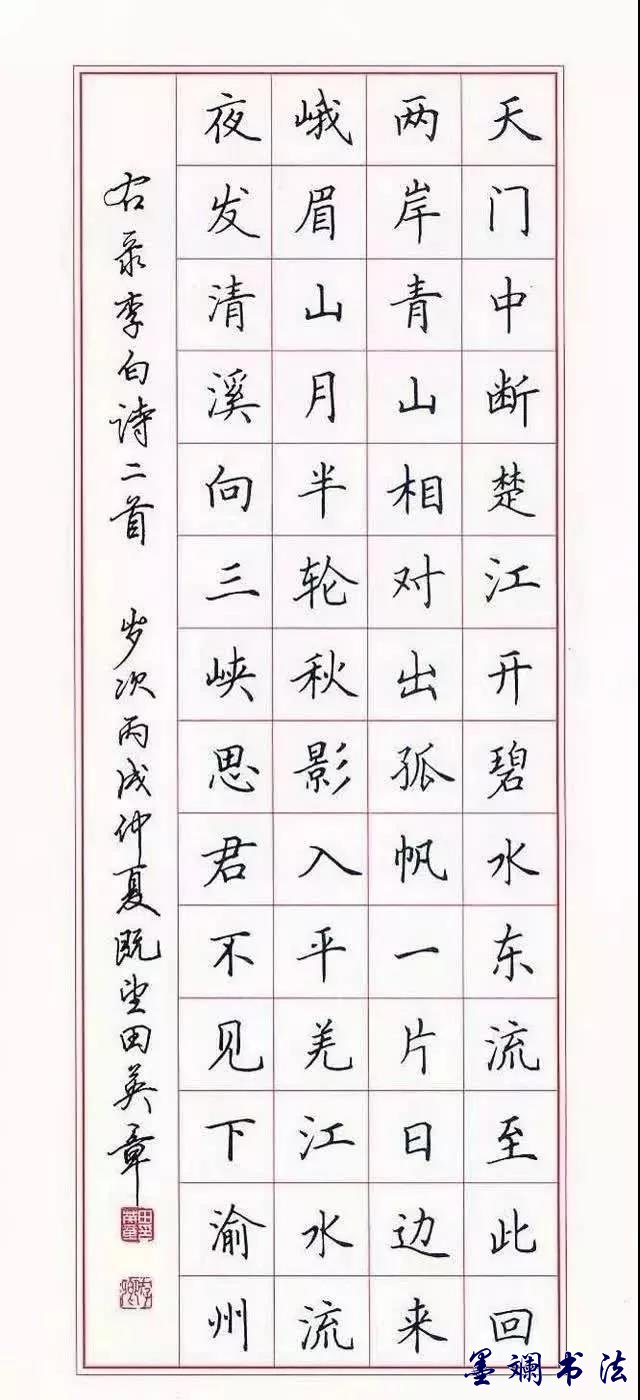 天门中断楚江开碧水东流至此回
两岸青山相对出孤帆一片日边来
峨眉山月半轮秋影入平羌江水流
夜发清溪向三峡思君不见下渝州
右录李白诗二首 岁次丙戌仲夏既望田英章
墨斓书法